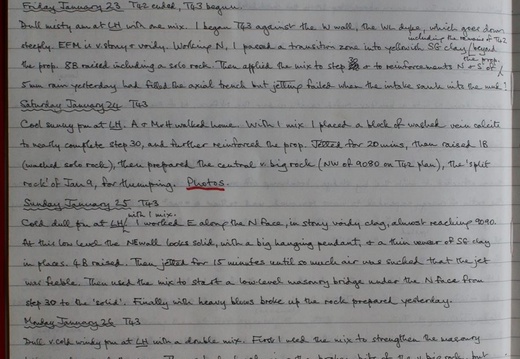 Friday January 23 T42 ended, T43 begun
Dull misty am at LH with one mix. I began T43 against the W wall, the WL dype, which goes down
including the removal of T42
steeply. EFM is v. stony & vordy. Working N, I passed a transition zone into yellowish SG clay/beyond
the prop. 8B raised including a solo rock. Then applied the mix to step 30 & to reinforcements N & S of the prop.
5mm rain yesterday had filled the axial trench but jetting failed when the intake sank into the muck!
Saturday January 24 T43
Cool sunny pm at LH. A & MrH walked home. With 1 mix I placed a block of washed vein calcite
to nearly complete step 30, and further reinforced the prop. Jetted for 20 mins, then raised 1B
(washed solo rock), then prepared the central v. big rock (NW of 9080 on T42 plan), the 'split
rock' of Jan 9, for thumping. Photos.
Sunday January 25 T43
with 1 mix.
Cold dull pm at LH/ I worked E along the N face, in stony vordy clag, almost reaching 9090.
At this low level the NE wall looks solid, with a big hanging pendant, & a thin veneer of SG clay
in places. 4B raised. Then jetted for 15 minutes until so much air was sucked that the jet
was feeble. Then used the mix to start a low-level masonry bridge under the N face from
step 30 to the 'solid'. Finally with heavy blows broke up the rock prepared yesterday.
Monday January 26 T43
Dull & cold windy pm at LH with a double mix. First I used the mix to strengthen the masonry